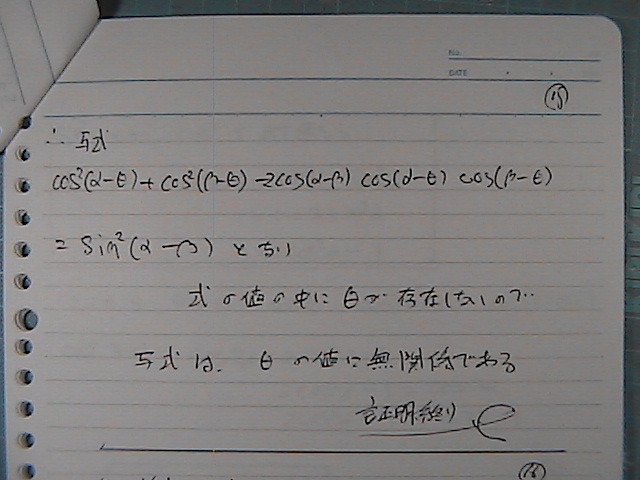 No.
DATE
⑮
∴ 与式
cos²(α-θ)+cos²(β-θ)-2cos(α-β) cos(α-θ) cos(β-θ)
= sin²(α-β) となり
式の値の中にθが存在しないので
与式は、θの値に無関係である
証明終り
⑯